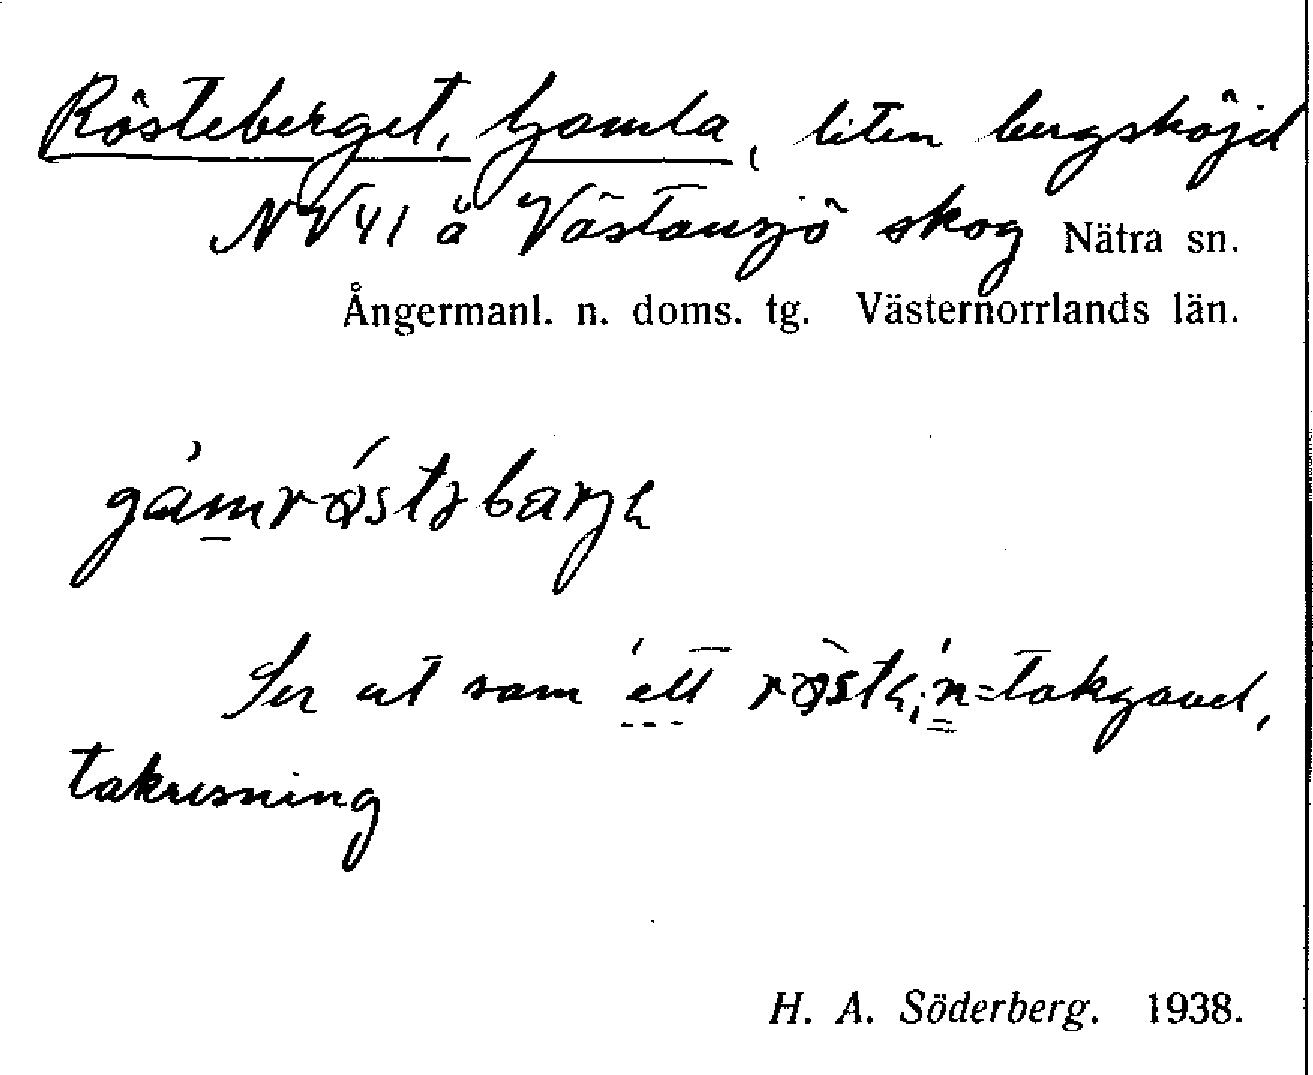 Rösteberget, Gamla, liten bergshöjd
NV41 å Västansjö skog Nätra sn.
Ångermanl. n. doms. tg. Västernorrlands län.
Ser ut som ett =takgavel,
takresning
H. A. Söderberg. 1938.